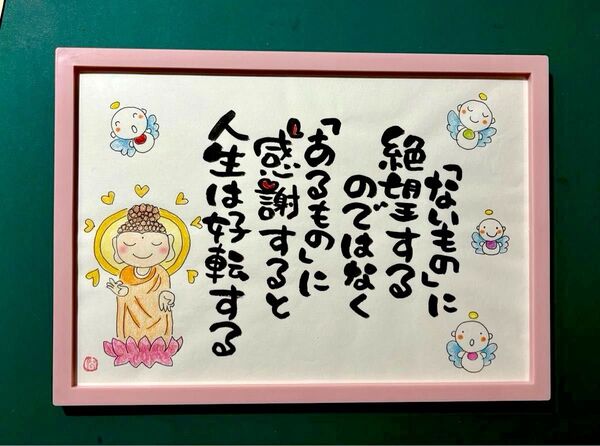 「ないもの」に
絶望する
のではなく
「あるもの」に
感謝すると
人生は好転する